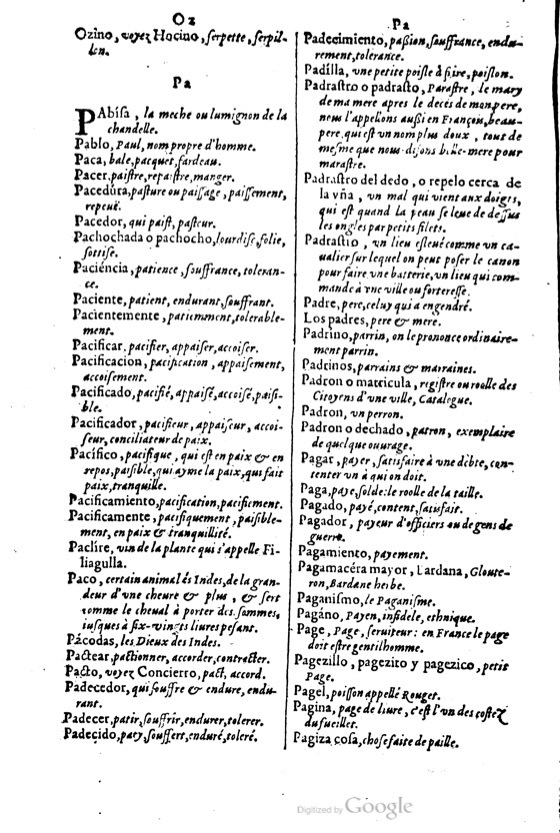 Oz
Ozino, voyez Hocino, serpette, serpil-
len.
Pa
PAbisa, la meche ou lumignon de la
chandelle.
Pablo, Paul, nom propre d'homme.
Paca, bale, pacquet, fardeau.
Pacer, paistre, repaistre, manger.
Pacedura, pasture ou paissage, paissement,
repeuë.
Pacedor, qui paist, pasteur.
Pachochada o pachocho, lourdise, folie,
sottise.
Paciéncia, patience, souffrance, toleran-
ce.
Paciente, patient, endurant, souffrant.
Pacientemente, patiemment, tolerable-
ment.
Pacificar, pacifier, appaiser, accoiser.
Pacificacion, pacification, appaisement,
accoisement.
Pacificado, pacifié, appaisé, accoisé, paisi-
ble.
Pacificador, pacifieur, appaiseur, accoi-
seur, conciliateur de paix.
Pacífico, pacifique, qui est en paix & en
repos, paisible, qui ayme la paix, qui fait
paix, tranquille.
Pacificamiento, pacification, pacifiement.
Pacificamente, pacifiquement, paisible-
ment, en paix & tranquillité.
Paclire, vin de la plante qui s'appelle Fi-
liagulla.
Paco, certain animal és Indes, de la gran-
deur d'vne cheure & plus, & sert
comme le cheual à porter des sommes,
iusques à six-vingts liures pesant.
Pácodas, les Dieux des Indes.
Pactear, pactionner, accorder, contracter.
Pacto, voyez Concierro, pact, accord.
Padecedor, qui souffre & endure, endu-
rant.
Padecer, patir, souffrir, endurer, tolerer.
Padecido, paty, souffert, enduré, toleré.
Pa
Padecimiento, passion, souffrance, endu-
rement, tolerance.
Padílla, vne petite poisle à frire, poislon.
Padrastro o padrasto, Parastre, le mary
de ma mere apres le decés de mon pere,
nous l'appellons aussi en François, beau-
pere, qui est vn nom plus doux, tout de
mesme que nous disons belle-mere pour
marastre.
Padrastro del dedo, o repelo cerca de
la vña, vn mal qui vient aux doigts,
qui est quand la peau se leue de dessus
les ongles par petits filets.
Padrastio, vn lieu esleué comme vn ca-
ualier sur lequel on peut poser le canon
pour faire vne batterie, vn lieu qui com-
mande à vne ville ou forteresse.
Padre, pere, celuy qui a engendré.
Los padres, pere & mere.
Padrino, parrin, on le prononce ordinaire-
ment parrin.
Padrinos, parrains & marraines.
Padron o matricula, registre ou roolle des
Citoyens d'vne ville, Catalogue.
Padron, vn perron.
Padron o dechado, patron, exemplaire
de quelque ouurage.
Pagar, payer, satisfaire à vne debte, con-
tenter vn à qui on doit.
Paga, paye, solde: le roolle de la taille.
Pagado, payé, content, satisfait.
Pagador, payeur d'officiers ou de gens de
guerre.
Pagamiento, payement.
Pagamacéra mayor, Lardana, Gloute-
ron, Bardane herbe.
Paganismo, le Paganisme.
Pagáno, Payen, infidele, ethnique.
Page, Page, seruiteur: en France le page
doit estre gentilhomme.
Pagezillo, pagezito y pagezico, petit
Page.
Pagel, poisson appellé Rouget.
Pagina, page de liure, c'est l'vn des costez
du fueillet.
Pagiza cosa, chose faite de paille.
Digitized by Google